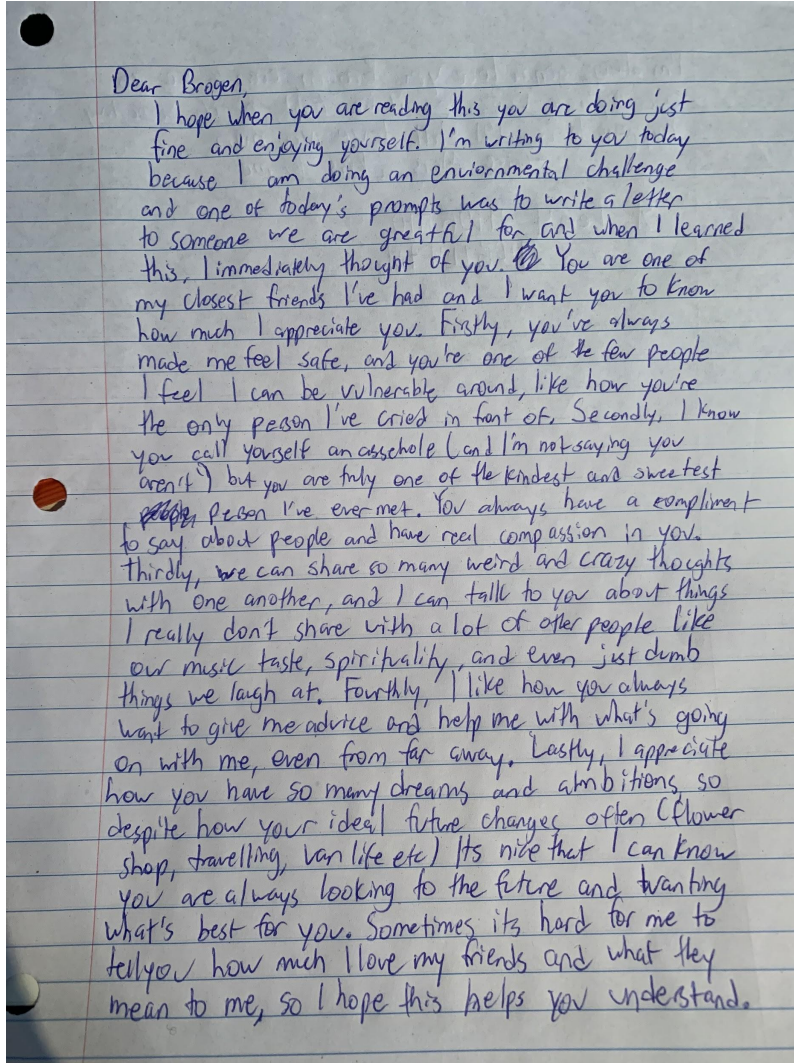 Dear Brogen,
I hope when you are reading this you are doing just
fine and enjoying yourself. I'm writing to you today
because I am doing an enviornmental challenge
and one of today's prompts was to write a letter
to someone we are greatful for and when I learned
this, I immediately thought of you. You are one of
my closest friends I've had and I want you to know
how much I appreciate you. Firstly, you've always
made me feel safe, and you're one of the few people
I feel I can be vulnerable around, like how you're
the only person I've cried in font of. Secondly, I know
you call yourself an asschole (and I'm not saying you
aren't) but you are truly one of the kindest and sweetest
person I've ever met. You always have a compliment
to say about people and have real compassion in you.
thirdly, we can share so many weird and crazy thoughts
with one another, and I can talk to you about things
I really don't share with a lot of other people like
our music taste, spirituality, and even just dumb
things we laugh at. Fourthly, I like how you always
want to give me advice and help me with what's going
on with me, even from far away. Lastly, I appreciate
how you have so many dreams and ambitions, so
despite how your ideal future changes often (flower
shop, travelling, van life etc) Its nice that I can know
you are always looking to the future and wanting
what's best for you. Sometimes its hard for me to
tell you how much I love my friends and what they
mean to me, so I hope this helps you understand.